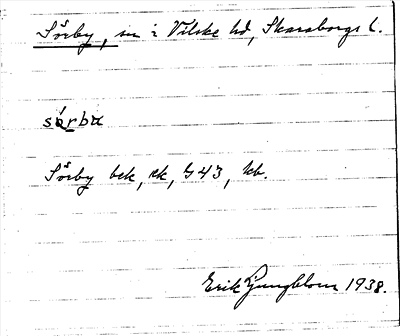 Sörby, sn i Vilske hd, Skaraborgs l.
sǿrbu
Sörby bek, rk, G43, kb.
Erik Ljungblom 1938.